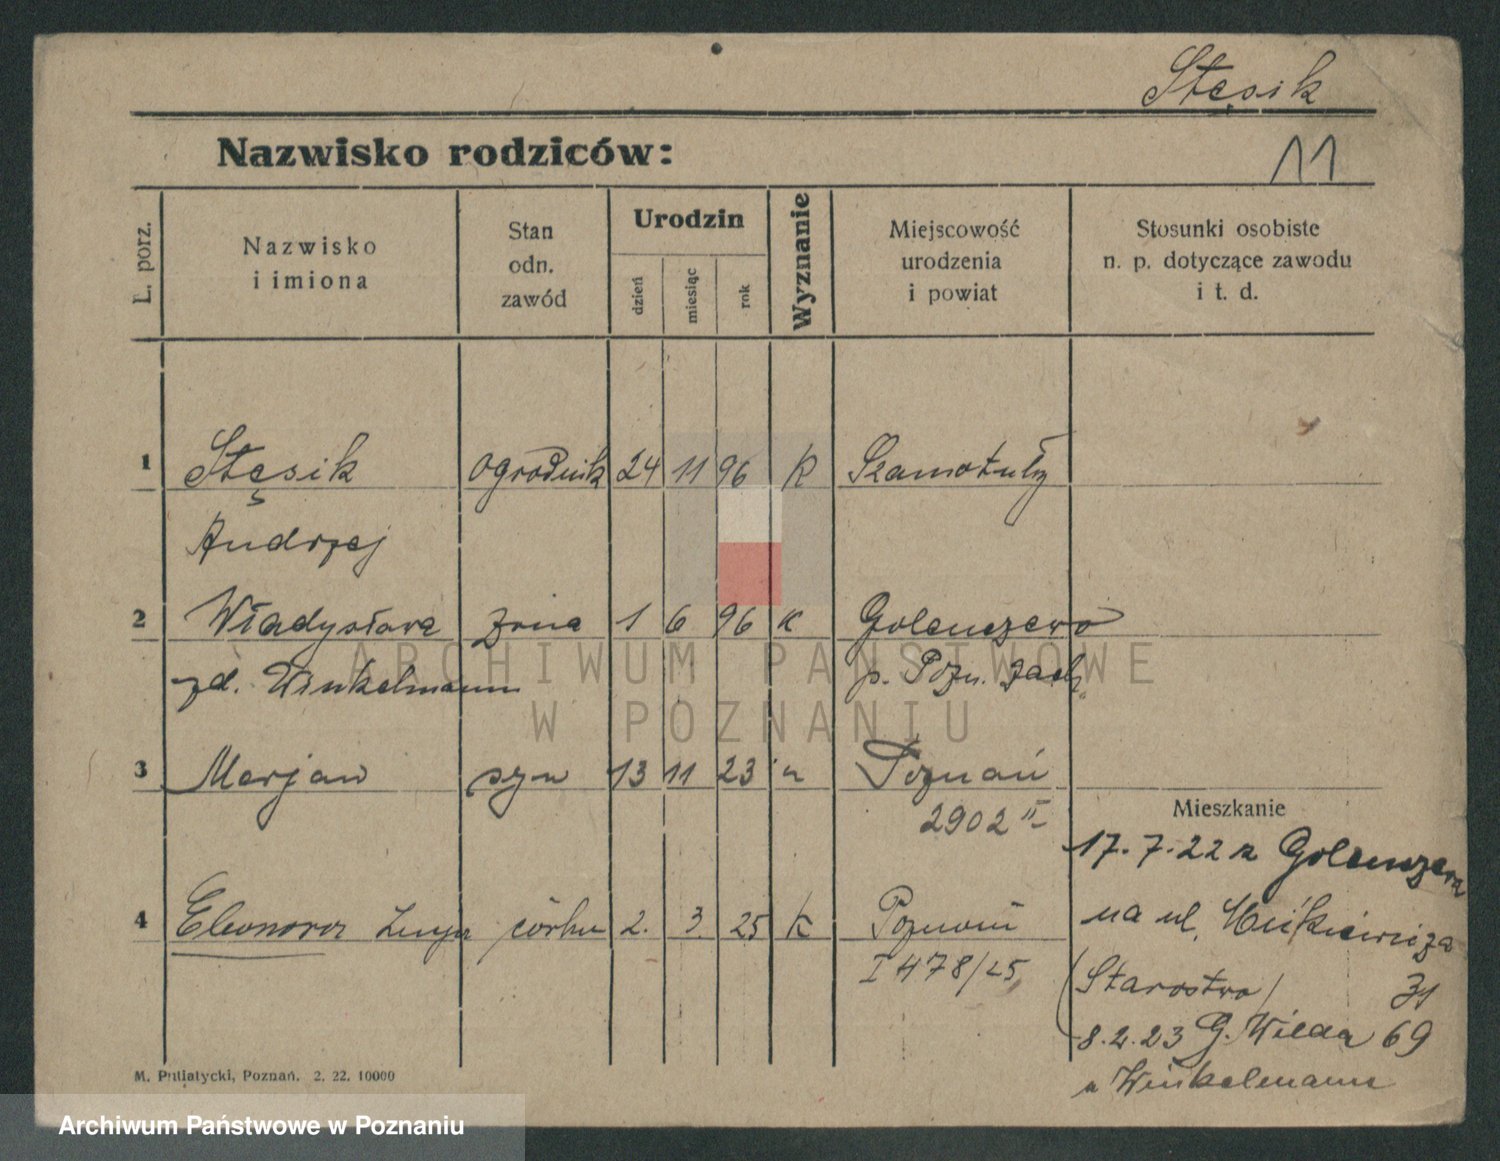 Stęsik
Nazwisko rodziców:
11
L. porz.
Nazwisko
i imiona
Stan
odn.
zawód
Urodzin
dzień
miesiąc
rok
Wyznanie
Miejscowość
urodzenia
i powiat
Stosunki osobiste
n. p. dotyczące zawodu
i t. d.
1 Stęsik ogrodnik 24 11 96 K Szamotuły
Andrzej
2 Władysława żona 1 6 96 K Golenczewo
zd. Winkelmann p. Pozn. zach.
3 Marjan syn 13 11 23 " Poznań
2902 II
Mieszkanie
17. 7. 22 z Golenczewa
4 Eleonora córka 2. 3. 25 K Poznań
na ul. Mickiewicza
I 478/25
(Starostwo) 31
8. 2. 23 G. Wilda 69
u Winkelmann
M. Putiatycki, Poznań. 2. 22. 10000
ARCHIWUM PAŃSTWOWE
W POZNANIU
Archiwum Państwowe w Poznaniu